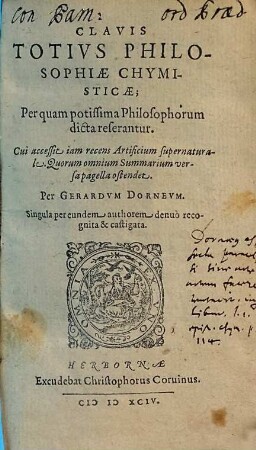 Con Bam: ord Præd
CLAVIS
TOTIVS PHILO-
SOPHIÆ CHYMI-
STICÆ;
Per quam potissima Philosophorum
dicta reserantur.
Cui accessit iam recens Artificium supernatura-
le. Quorum omnium Summarium ver-
sa pagella ostendet.
PER GERARDVM DORNEVM.
Singula per eundem authorem denuò reco-
gnita & castigata.
OMNI
HERBORNÆ
Excudebat Christophorus Coruinus.
CIↃ IↃ XCIV.
114.